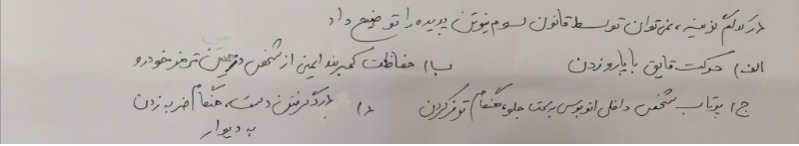 در کدام گزینه، نمی‌توان توسط قانون سوم نیوتن پدیده را توضیح داد
الف) حرکت قایق با پارو زدن ب) حفاظت کمربند ایمنی از شخص در حین ترمز خودرو
ج) پرتاب شخص داخل اتوبوس به سمت جلو، هنگام توقف کردن د) درد گرفتن دست، هنگام ضربه زدن
به دیوار